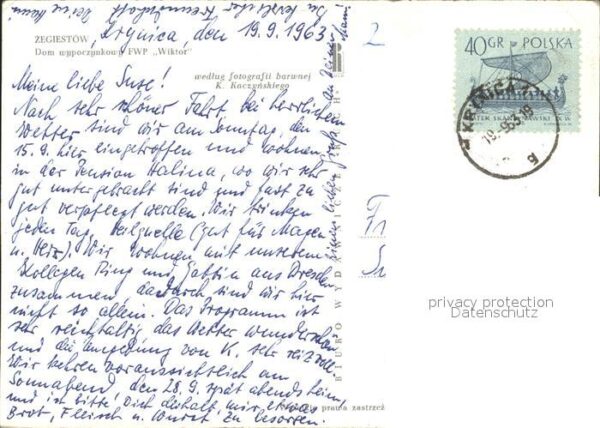 Krynica, den 19.9.1963
ŻEGIESTÓW
Dom wypoczynkowy FWP „Wiktor"
według fotografii barwnej
K. Kaczyńskiego
Meine liebe Suse!
Nach sehr schöner Fahrt bei herrlichem
Wetter sind wir am Sonntag, den
15.9. hier eingetroffen und wohnen
in der Pension Halina, wo wir sehr
gut untergebracht sind und fast zu
gut verpflegt werden. Wir trinken
jeden Tag Heilquelle (gut für Magen
u. Herz). Wir wohnen mit unserem
Kollegen Ring und Gattin aus Dresden
zusammen, dadurch sind wir hier
nicht so allein. Das Programm ist
sehr reichhaltig, das Wetter wunderschön
und die Umgebung von K. sehr reizvoll.
Wir kehren voraussichtlich am
Sonnabend, den 28.9. spät abends heim,
und ich bitte Dich deshalb, mir etwas
Brot, Fleisch u. Wurst zu besorgen.
In herzlicher Freundschaft Deine
BIURO WYDAWNICZE
prawa zastrzeż
2
Fr
40 GR POLSKA
KRYNICA
19.9.63
privacy protection
Datenschutz